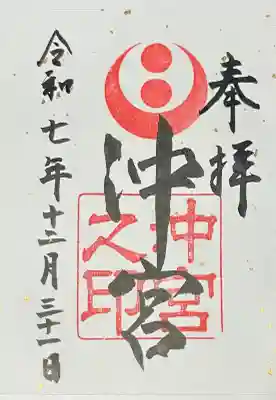 奉拝
沖宮
沖宮之印
令和七年十二月三十一日